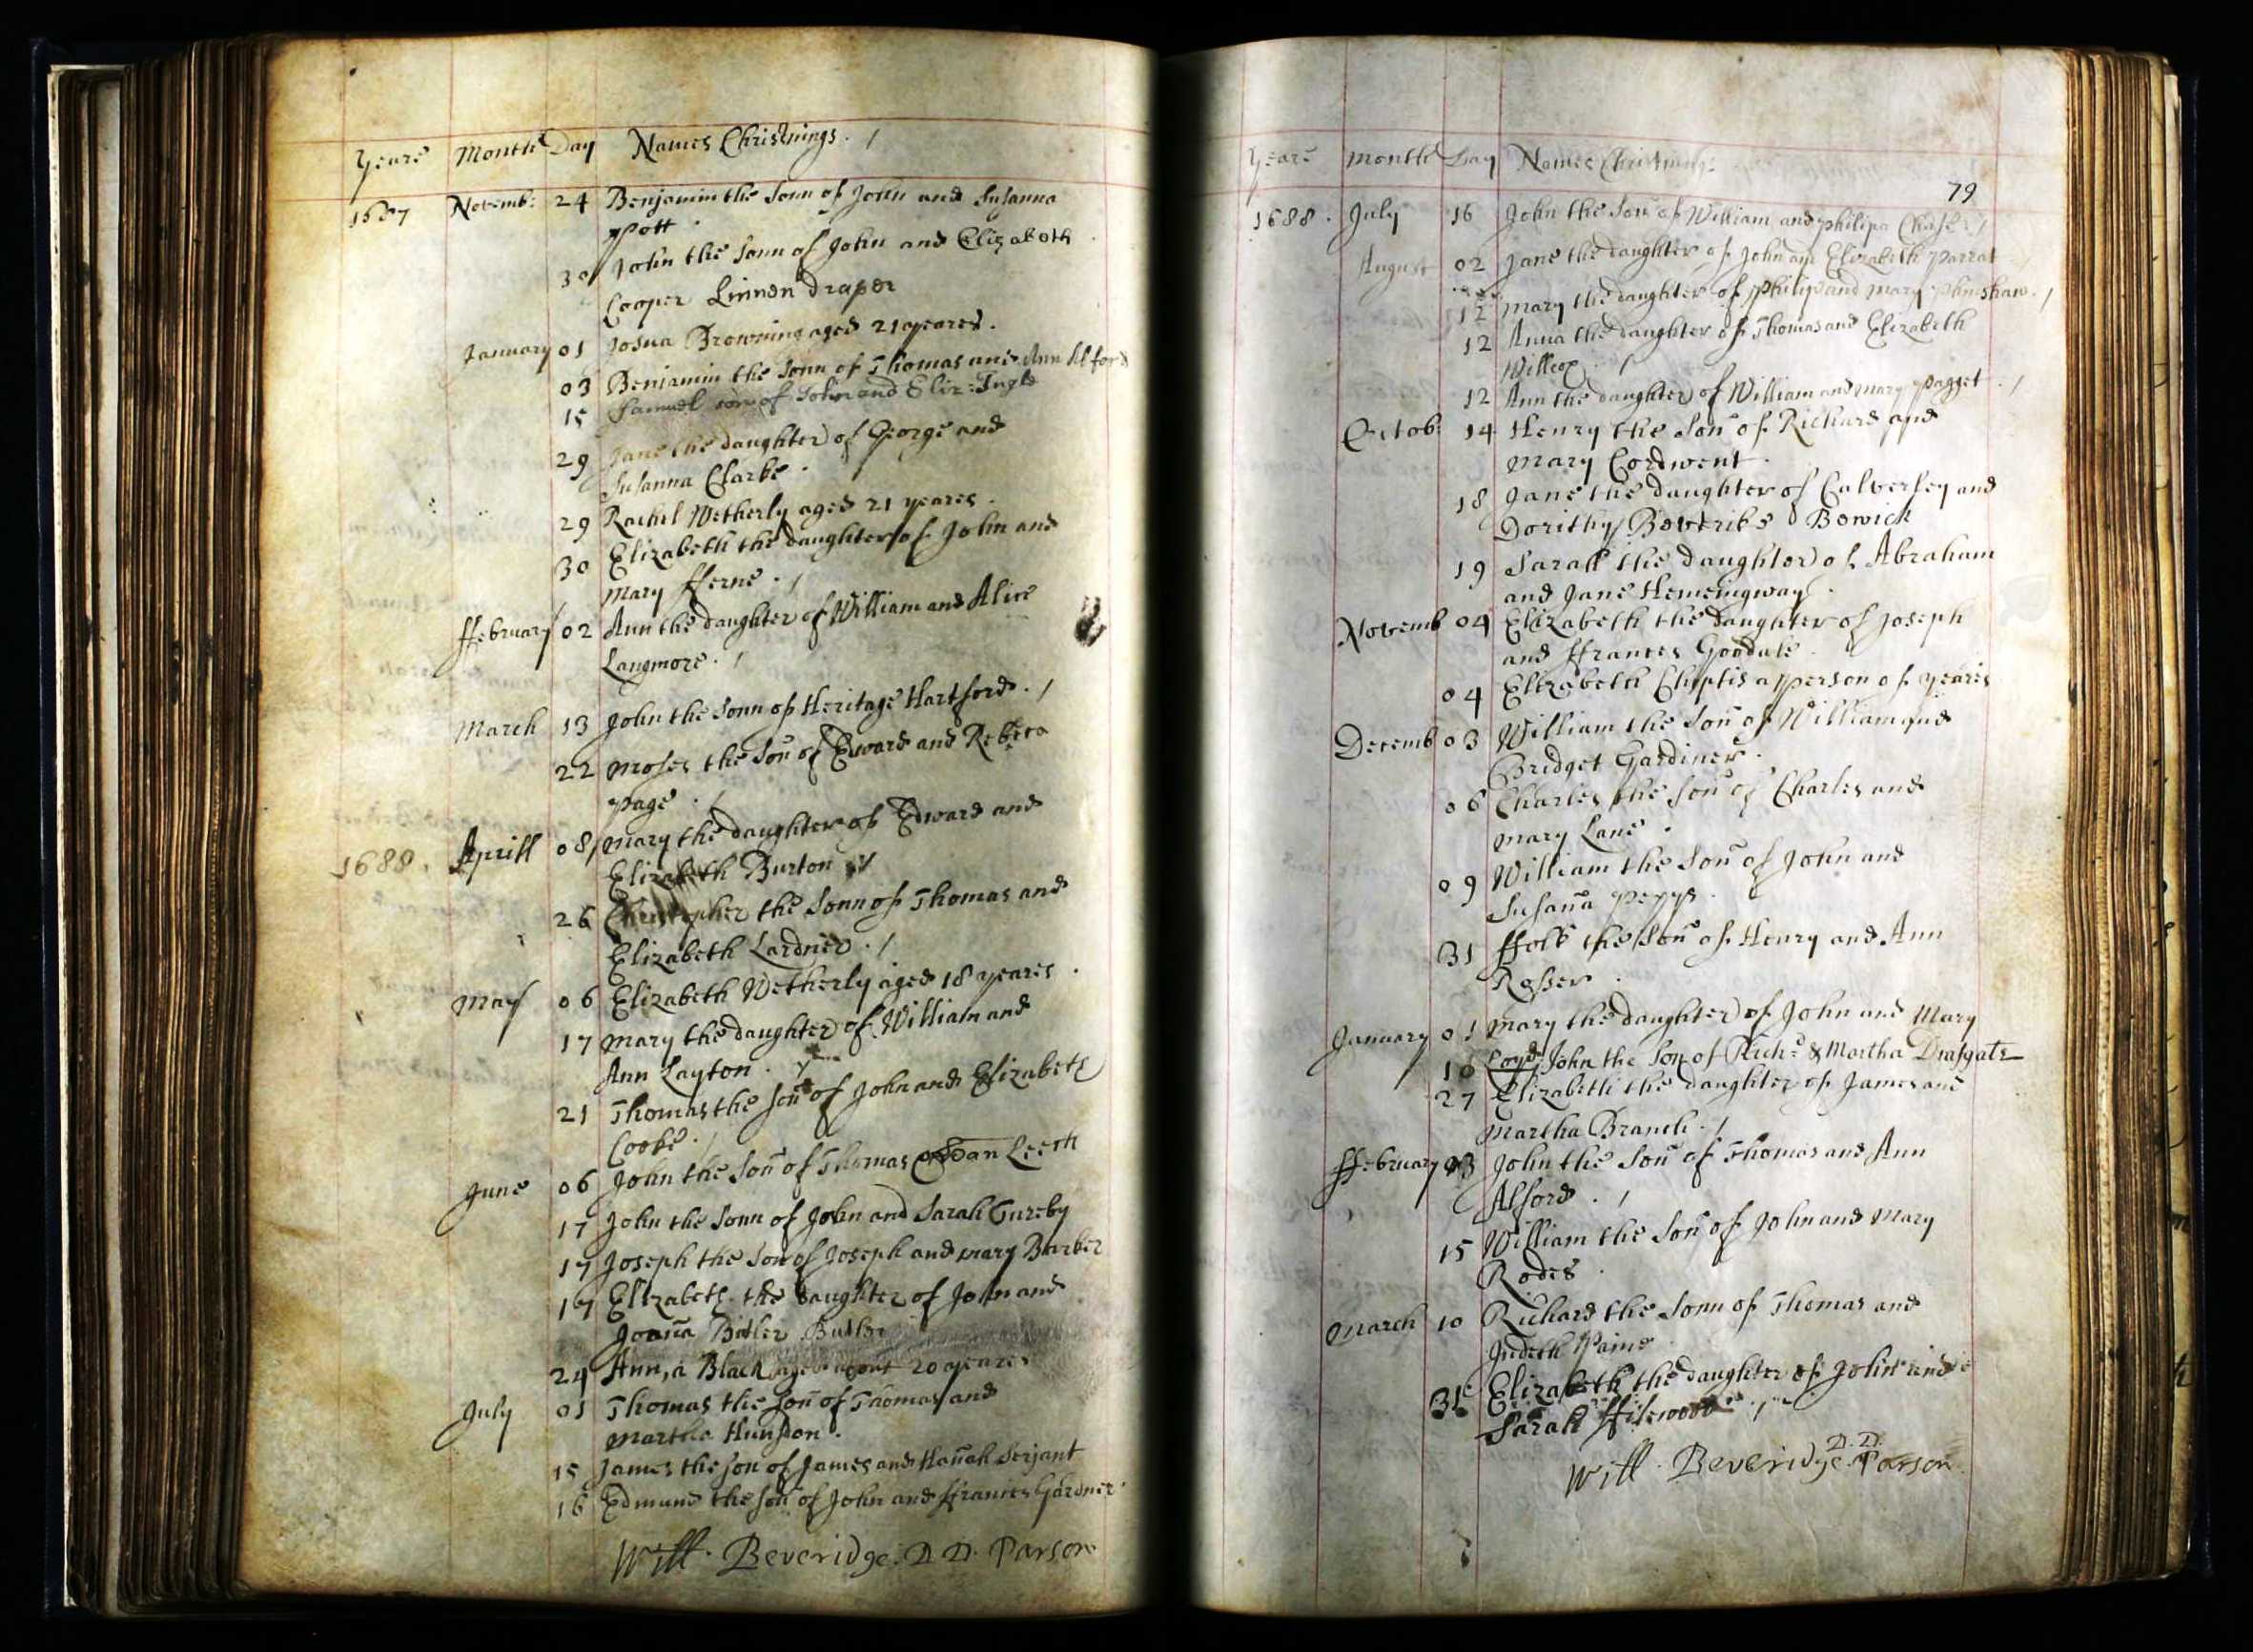 Yeare Month Day Names Christnings
1687 Novemb: 24 Benjamin the Sonn of John and Susanna
Pott
30 John the Sonn of John and Elizabeth
Cooper Linnen draper
January 01 Josua Browning aged 21 yeares.
03 Beniamin the Sonn of Thomas and Ann Alford
15 Samuel son of John and Eliz: Ingle
29 Jane the daughter of George and
Susanna Clarke.
29 Rachel Wetherly aged 21 yeares.
30 Elizabeth the daughter of John and
Mary fferne.
ffebruary 02 Ann the daughter of William and Alice
Langmore.
March 13 John the Sonn of Heritage Hartford.
22 Moses the Son of Edward and Rebeca
Page.
1688. Aprill 08 Mary the daughter of Edward and
Elizabeth Burton
26 Christopher the Sonn of Thomas and
Elizabeth Lardner.
May 06 Elizabeth Wetherly aged 18 yeares.
17 Mary the daughter of William and
Ann Layton.
21 Thomas the son of John and Elizabeth
Cooke.
June 06 John the Son of Thomas Leech
17 John the Sonn of John and Sarah Tureby
17 Joseph the Son of Joseph and Mary Barber
17 Elizabeth the daughter of John and
Joana Butler
24 Ann, a Black aged about 20 yeares
July 01 Thomas the son of Thomas and
Martha Hunsdon.
15 James the son of James and Hanah Serjant
16 Edmund the son of John and ffrances Gardner.
Will. Beveridge. D D. Parson
Yeare Month Day Names Christnings
79
1688. July 16 John the Son of William and Philipa Chase
August 02 Jane the daughter of John and Elizabeth Parrat
12 Mary the daughter of Philip and Mary
12 Anna the daughter of Thomas and Elizabeth
Willcox.
12 Ann the daughter of William and Mary Pagget
Octob: 14 Henry the Son of Richard and
Mary Cordwent.
18 Jane the daughter of Calverley and
Dorithy Bewick
19 Sarah the daughter of Abraham
and Jane Hemeingway.
Novemb 04 Elizabeth the daughter of Joseph
and ffrances Goodale.
04 Elizabeth a person of yeares
Decemb 03 William the Son of William and
Bridget Gardiner.
06 Charles the Son of Charles and
Mary Lane.
09 William the Son of John and
Susana Pepys.
31 ffolk the Son of Henry and Ann
Rosser.
January 01 Mary the daughter of John and Mary
Loyd
10 John the Son of Rich:d & Martha Drafgate
27 Elizabeth the daughter of James and
Martha Branch.
ffebruary 03 John the Son of Thomas and Ann
Alford.
15 William the Son of John and Mary
Rodes.
March 10 Richard the Sonn of Thomas and
Judeth Paine.
31 Elizabeth the daughter of John and
Sarah
Will. Beveridge. D. D. Parson